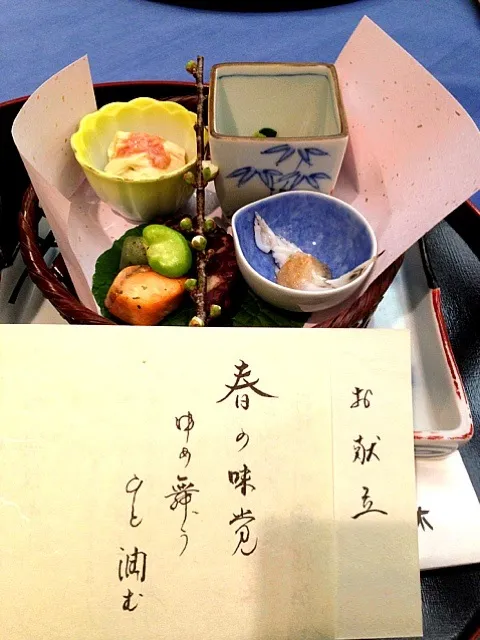 お献立
春の味覚
ゆめ舞う
心と潤む
木